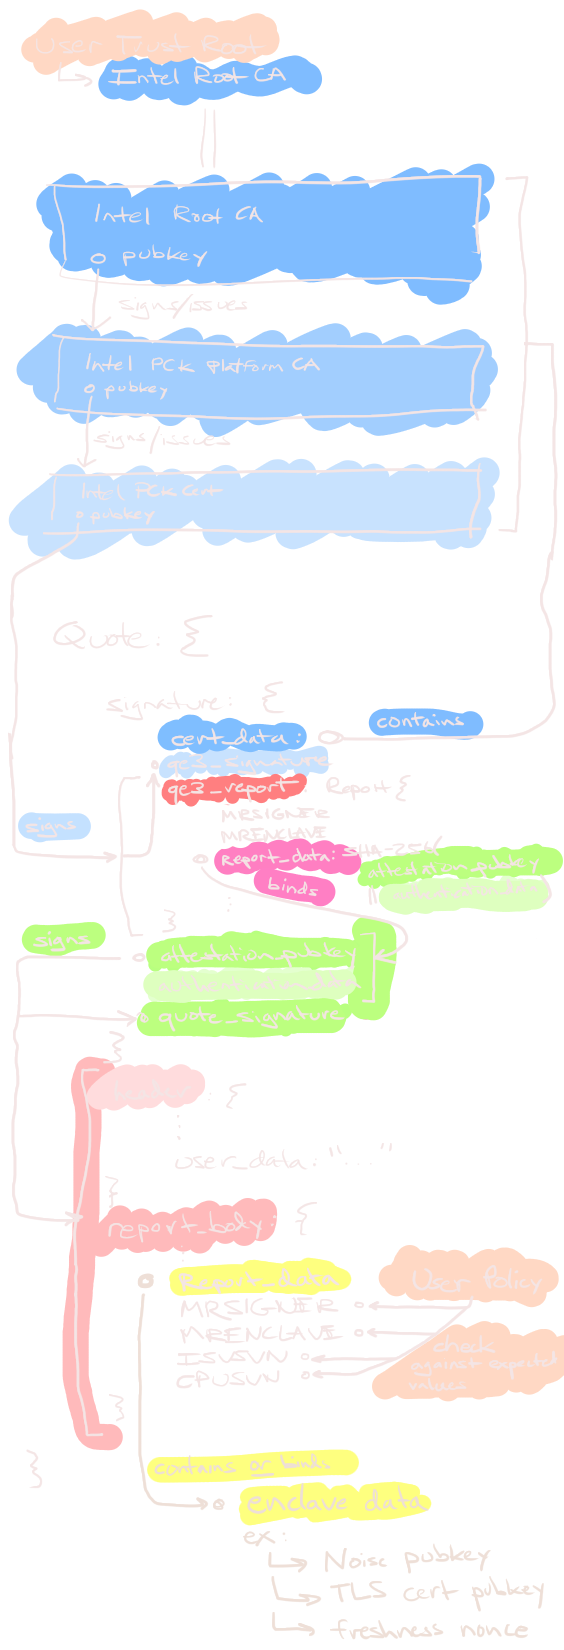 User Trust Root
Intel Root CA
Intel Root CA
pubkey
signs/issues
Intel PCK Platform CA
pubkey
signs/issues
Intel PCK Cert
pubkey
Quote: {
signature: {
contains
cert_data:
qe3_signature
qe3_report Report {
signs
MRSIGNER
MRENCLAVE
Report_data: SHA-256(
attestation_pubkey
binds
|| authentication_data
}
signs
attestation_pubkey
authentication_data
quote_signature
}
: {
user_data: "...."
}
report_body: {
Report_data
User Policy
MRSIGNER
MRENCLAVE
check
ISVSVN
against expected
CPUSVN
values
}
}
contains or binds
enclave data
ex:
Noise pubkey
TLS cert pubkey
freshness nonce